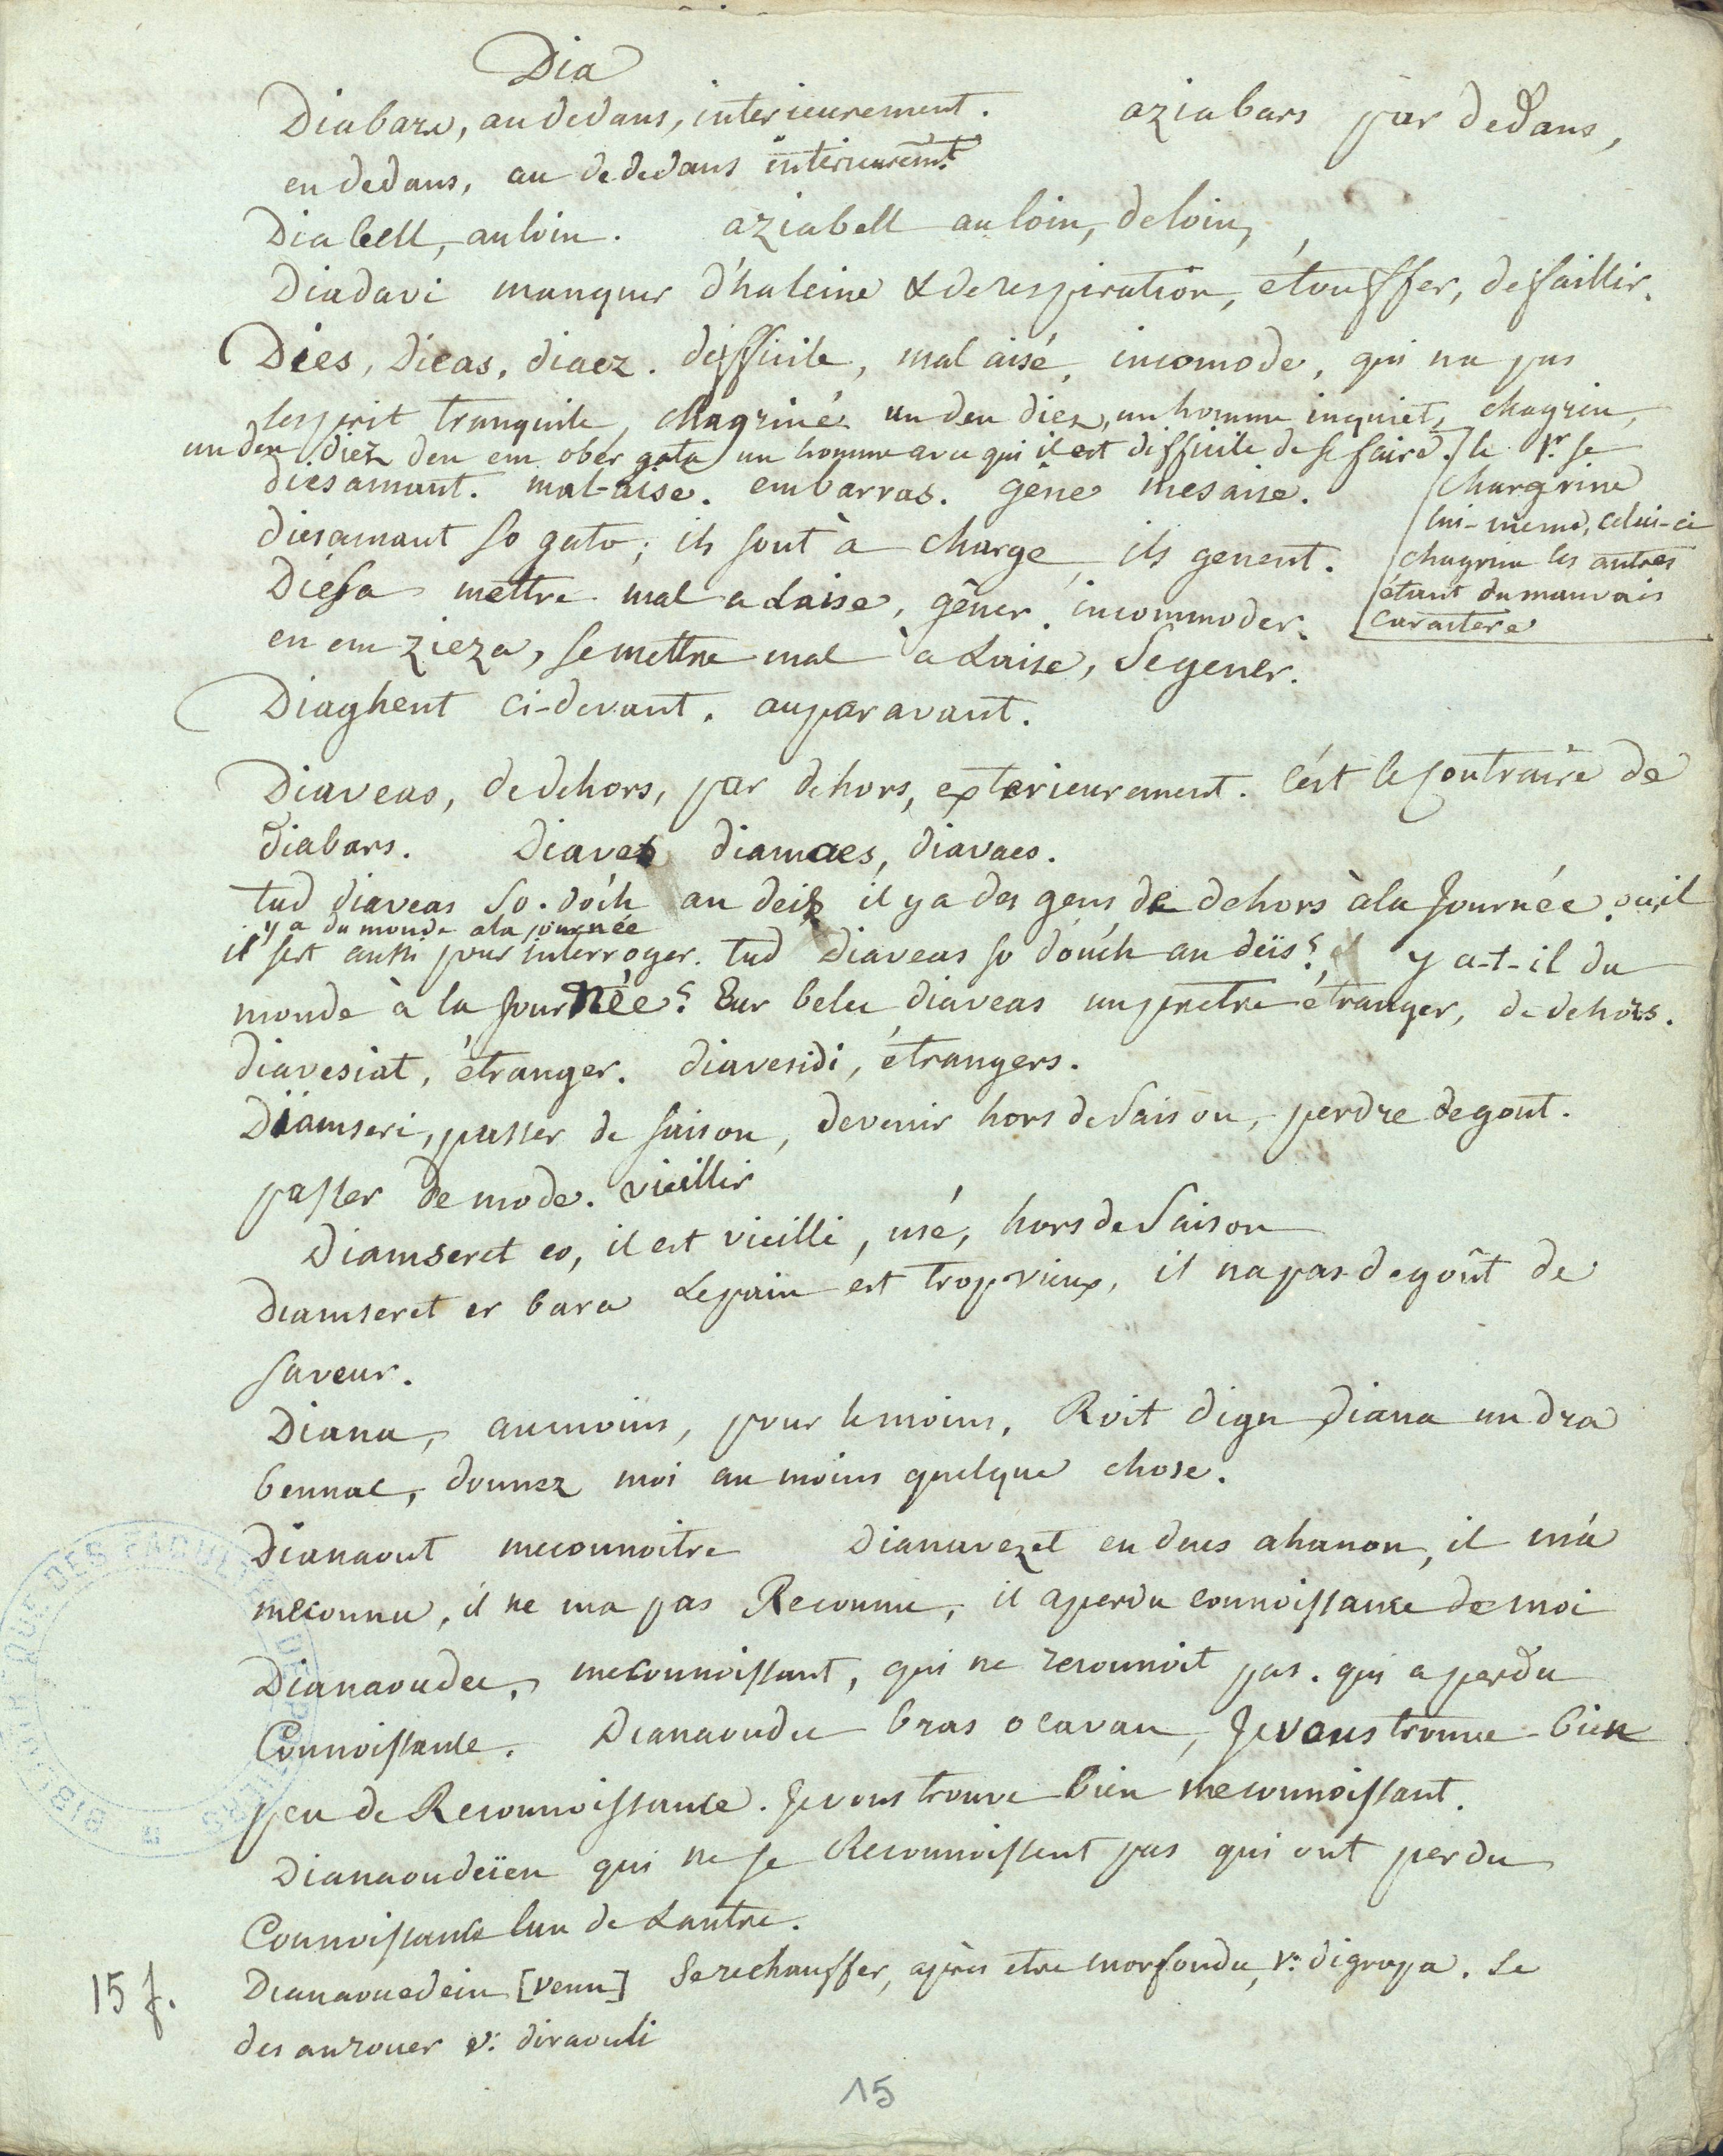 Dia
Diabars, au dedans, interieurement. aziabars par dedans,
en dedans, au dededans interieuremt
Diabell, au loin. aziabell au loin, de loin,
Diadavi manquer d'haleine & de respiration, étouffer, defaillir.
Dies, dieas, diaez. difficile, mal aisé, incomode, qui na pas
lesprit tranquile, chagriné un den diez, un homme inquiet, chagrin,
un den diez den em ober gata un homme avec qui il est difficile de se faire. le 1r. se
diesamant. mal-aise. embarras. gêne mesaise. chargrine
lui-meme, celui-ci
diesamant so gato; ils sont à charge, ils genent. chagrine les autres
Diesa mettre mal a Laise, gêner, incommoder. étant du mauvais
caractere
en em zieza, se mettre mal à Laise, se gener.
Diaghent ci-devant. auparavant.
Diaveas, de dehors, par dehors, exterieurement. c'ést le contraire de
diabars. Diaves diamaes, diavaes.
tud diaveas so. doc'h an deis il y a des gens de dehors à la journée, ou il
y a du monde a la journée
il sert aussi pour interroger. tud diaveas so douc'h an deïs? y a-t-il du
monde à la journée? Eur belec diaveas un pretre étranger, de dehors.
diavesiat, étranger. diavesidi, étrangers.
Diamseri, passer de saison, devenir hors de saison, perdre de gout.
passer de mode. vieillir
Diamseret eo, il est vieilli, usé, hors de saison
Diamseret er bara Le pain est trop vieux, il na pas de goût de
saveur.
Diana, au moins, pour le moins, Roit dign diana un dra
bennac, donnez moi au moins quelque chose.
Dianaout meconnoitre Dianavezet en deus ahanon, il m'a
meconnu, il ne ma pas Reconnu, il a perdu connoissance de moi
Dianaoudec, meconnoissant, qui ne reconnoit pas. qui a perdu
Connoissance. Dianaoudec bras o cavan, Je vous trouve bien
peu de Reconnoissance. Je vous trouve bien meconnoissant.
Dianaoudeïen qui ne se Reconnoissent pas qui ont perdu
Connoissance lun de Lautre.
15 f. Dianaouedein [venn] se rechauffer, après etre morfondu, v: digropa. se
desanrouer v: diraouli
15